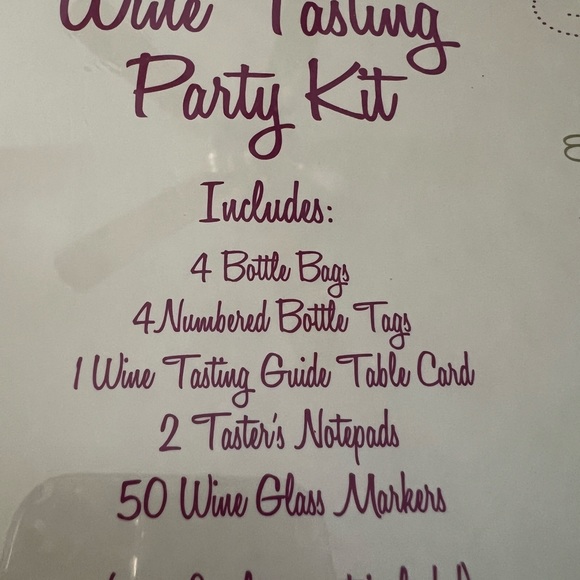 Wine Tasting
Party Kit
Includes:
4 Bottle Bags
4 Numbered Bottle Tags
1 Wine Tasting Guide Table Card
2 Taster's Notepads
50 Wine Glass Markers